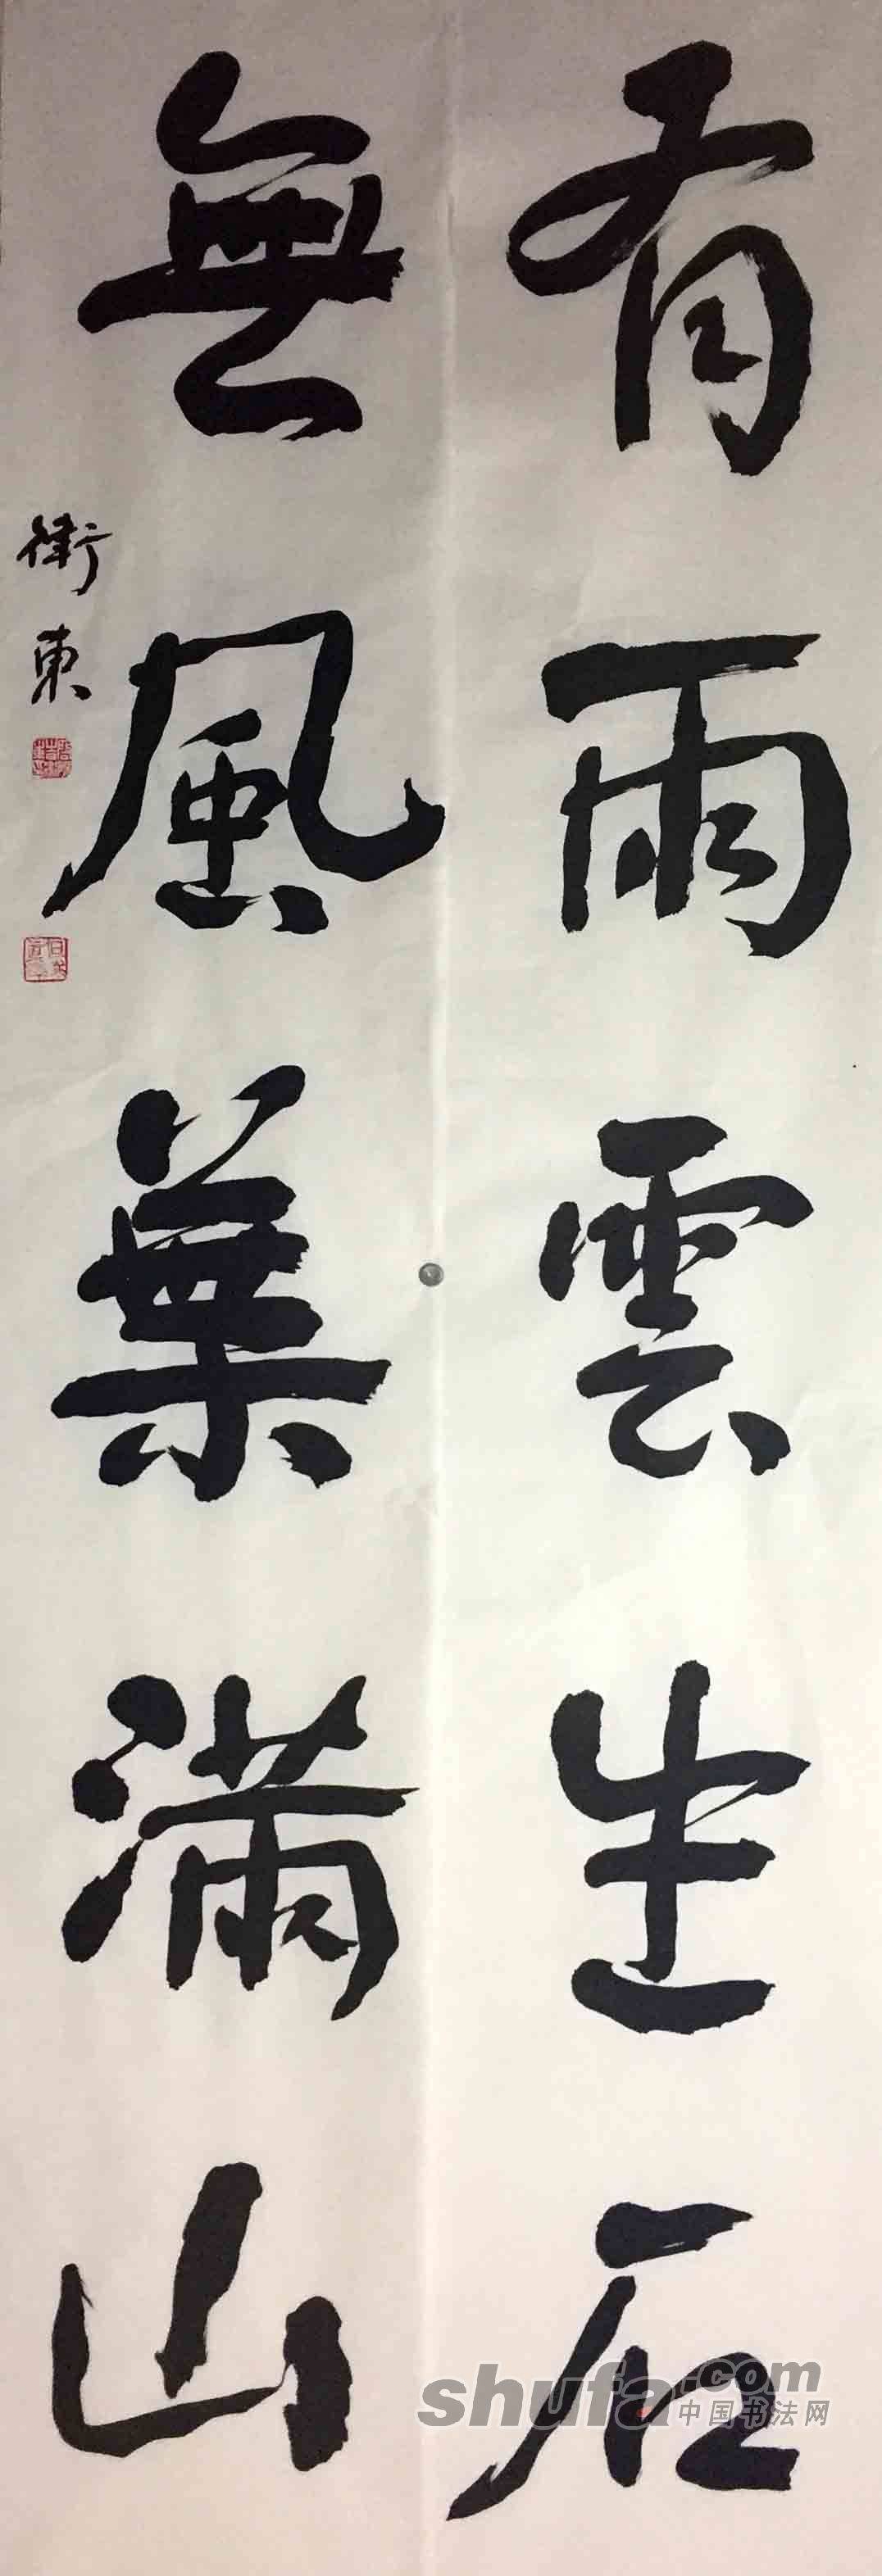 有雨雲生石
無風葉滿山
衛東
shufa.com
中国书法网